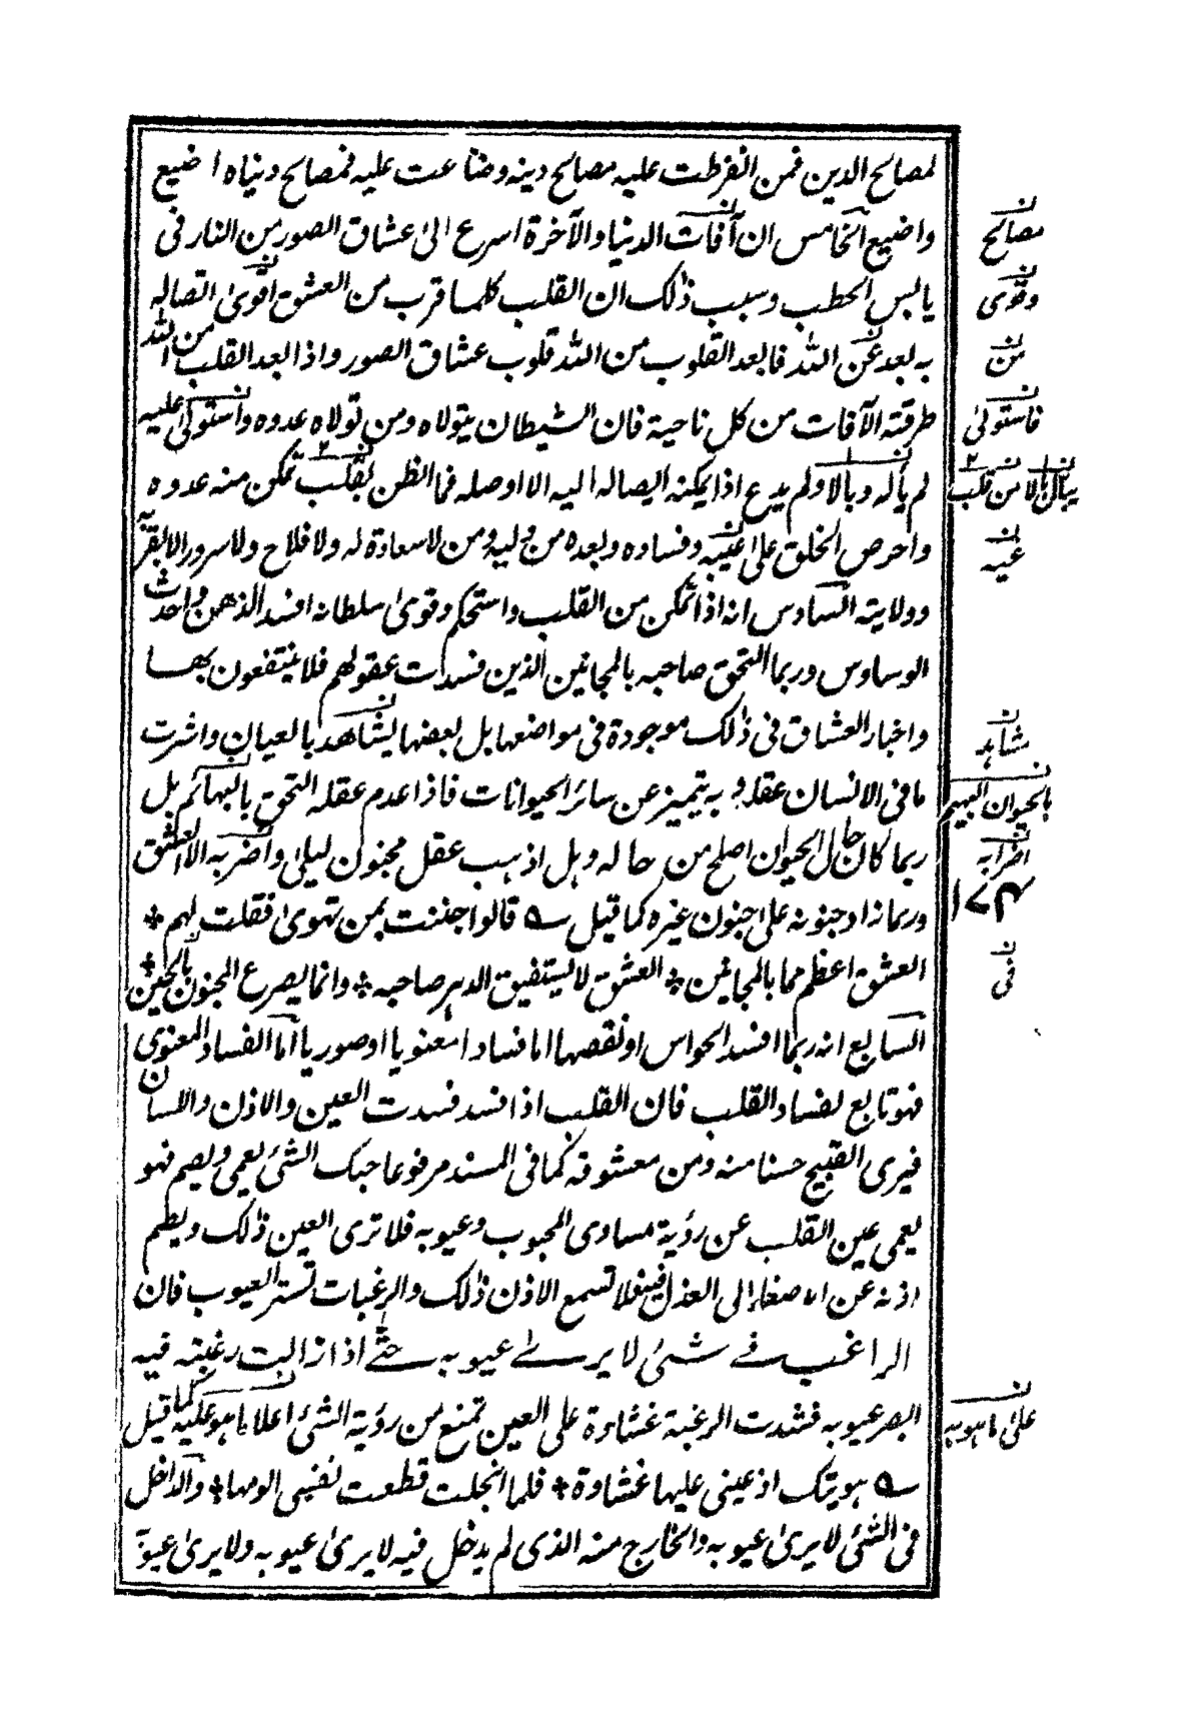 لمصالح الدين فمن انفرطت عليه مصالح دينه وضاعت عليه فمصالح دنياه اضيع
واضيع الخامس ان آفات الدنيا والآخرة اسرع الى عشاق الصور من النار فى
يابس الحطب وسبب ذلك ان القلب كلما قرب من العشق اقوى اتصاله
به بعد عن الله فابعد القلوب من الله قلوب عشاق الصور واذا بعد القلب من الله
طرقته الآفات من كل ناحية فان الشيطان يتولاه ومن تولاه عدوه واستولى عليه
لم يأله وبالا ولم يدع اذا يمكنه ايصاله اليه الا اوصله فما الظن بقلب تمكن منه عدوه
واحرص الخلق على غيه وفساده وبعده من وليه ومن لا سعادة له ولا فلاح ولا سرور الا بقربه
وولايته السادس انه اذا تمكن من القلب واستحكم وقوى سلطانه افسد الذهن واحدث
الوساوس وربما التحق صاحبه بالمجانين الذين فسدت عقولهم فلا ينتفعون بها
واخبار العشاق فى ذلك موجودة فى مواضعها بل بعضها يشاهد بالعيان واشرت
ما فى الانسان عقله وبه يتميز عن سائر الحيوانات فاذا عدم عقله التحق بالبهائم بل
ربما كان حال الحيوان اصلح من حاله وهل اذهب عقل مجنون ليلى واضربه الا العشق
وربما زاد جنونه على جنون غيره كما قيل قالوا جننت بمن تهوى فقلت لهم *
العشق اعظم مما بالمجانين * العشق لا يستفيق الدهر صاحبه * وانما يصرع المجنون بالحين *
السابع انه ربما افسد الحواس او نقصها اما فسادا معنويا او صوريا اما الفساد المعنوى
فهو تابع لفساد القلب فان القلب اذا فسد فسدت العين والاذن واللسان
فيرى القبيح حسنا منه ومن معشوقه كما فى المسند مرفوعا حبك الشئ يعمى ويصم فهو
يعمى عين القلب عن رؤية مساوى المحبوب وعيوبه فلا ترى العين ذلك ويصم
اذنه عن الاصغاء الى العذل فيه فلا تسمع الاذن ذلك والرغبات تستر العيوب فان
الراغب فى شئ لا يرى عيوبه حتى اذا زالت رغبته فيه
ابصر عيوبه فشدت الرغبة غشاوة على العين تمنع من رؤية الشئ اعلا ما هو عليه كما قيل
هويتك اذ عينى عليها غشاوة * فلما انجلت قطعت نفسى الومها * والداخل
فى الشئ لا يرى عيوبه والخارج منه الذى لم يدخل فيه لا يرى عيوبه ولا يرى عيوبه
مصالح
وقوى
من
فاستولى
من قلب
غيه
شاهد
بالحيوان البهيم
اضرابه
١٧٣
فى
على ما هو به